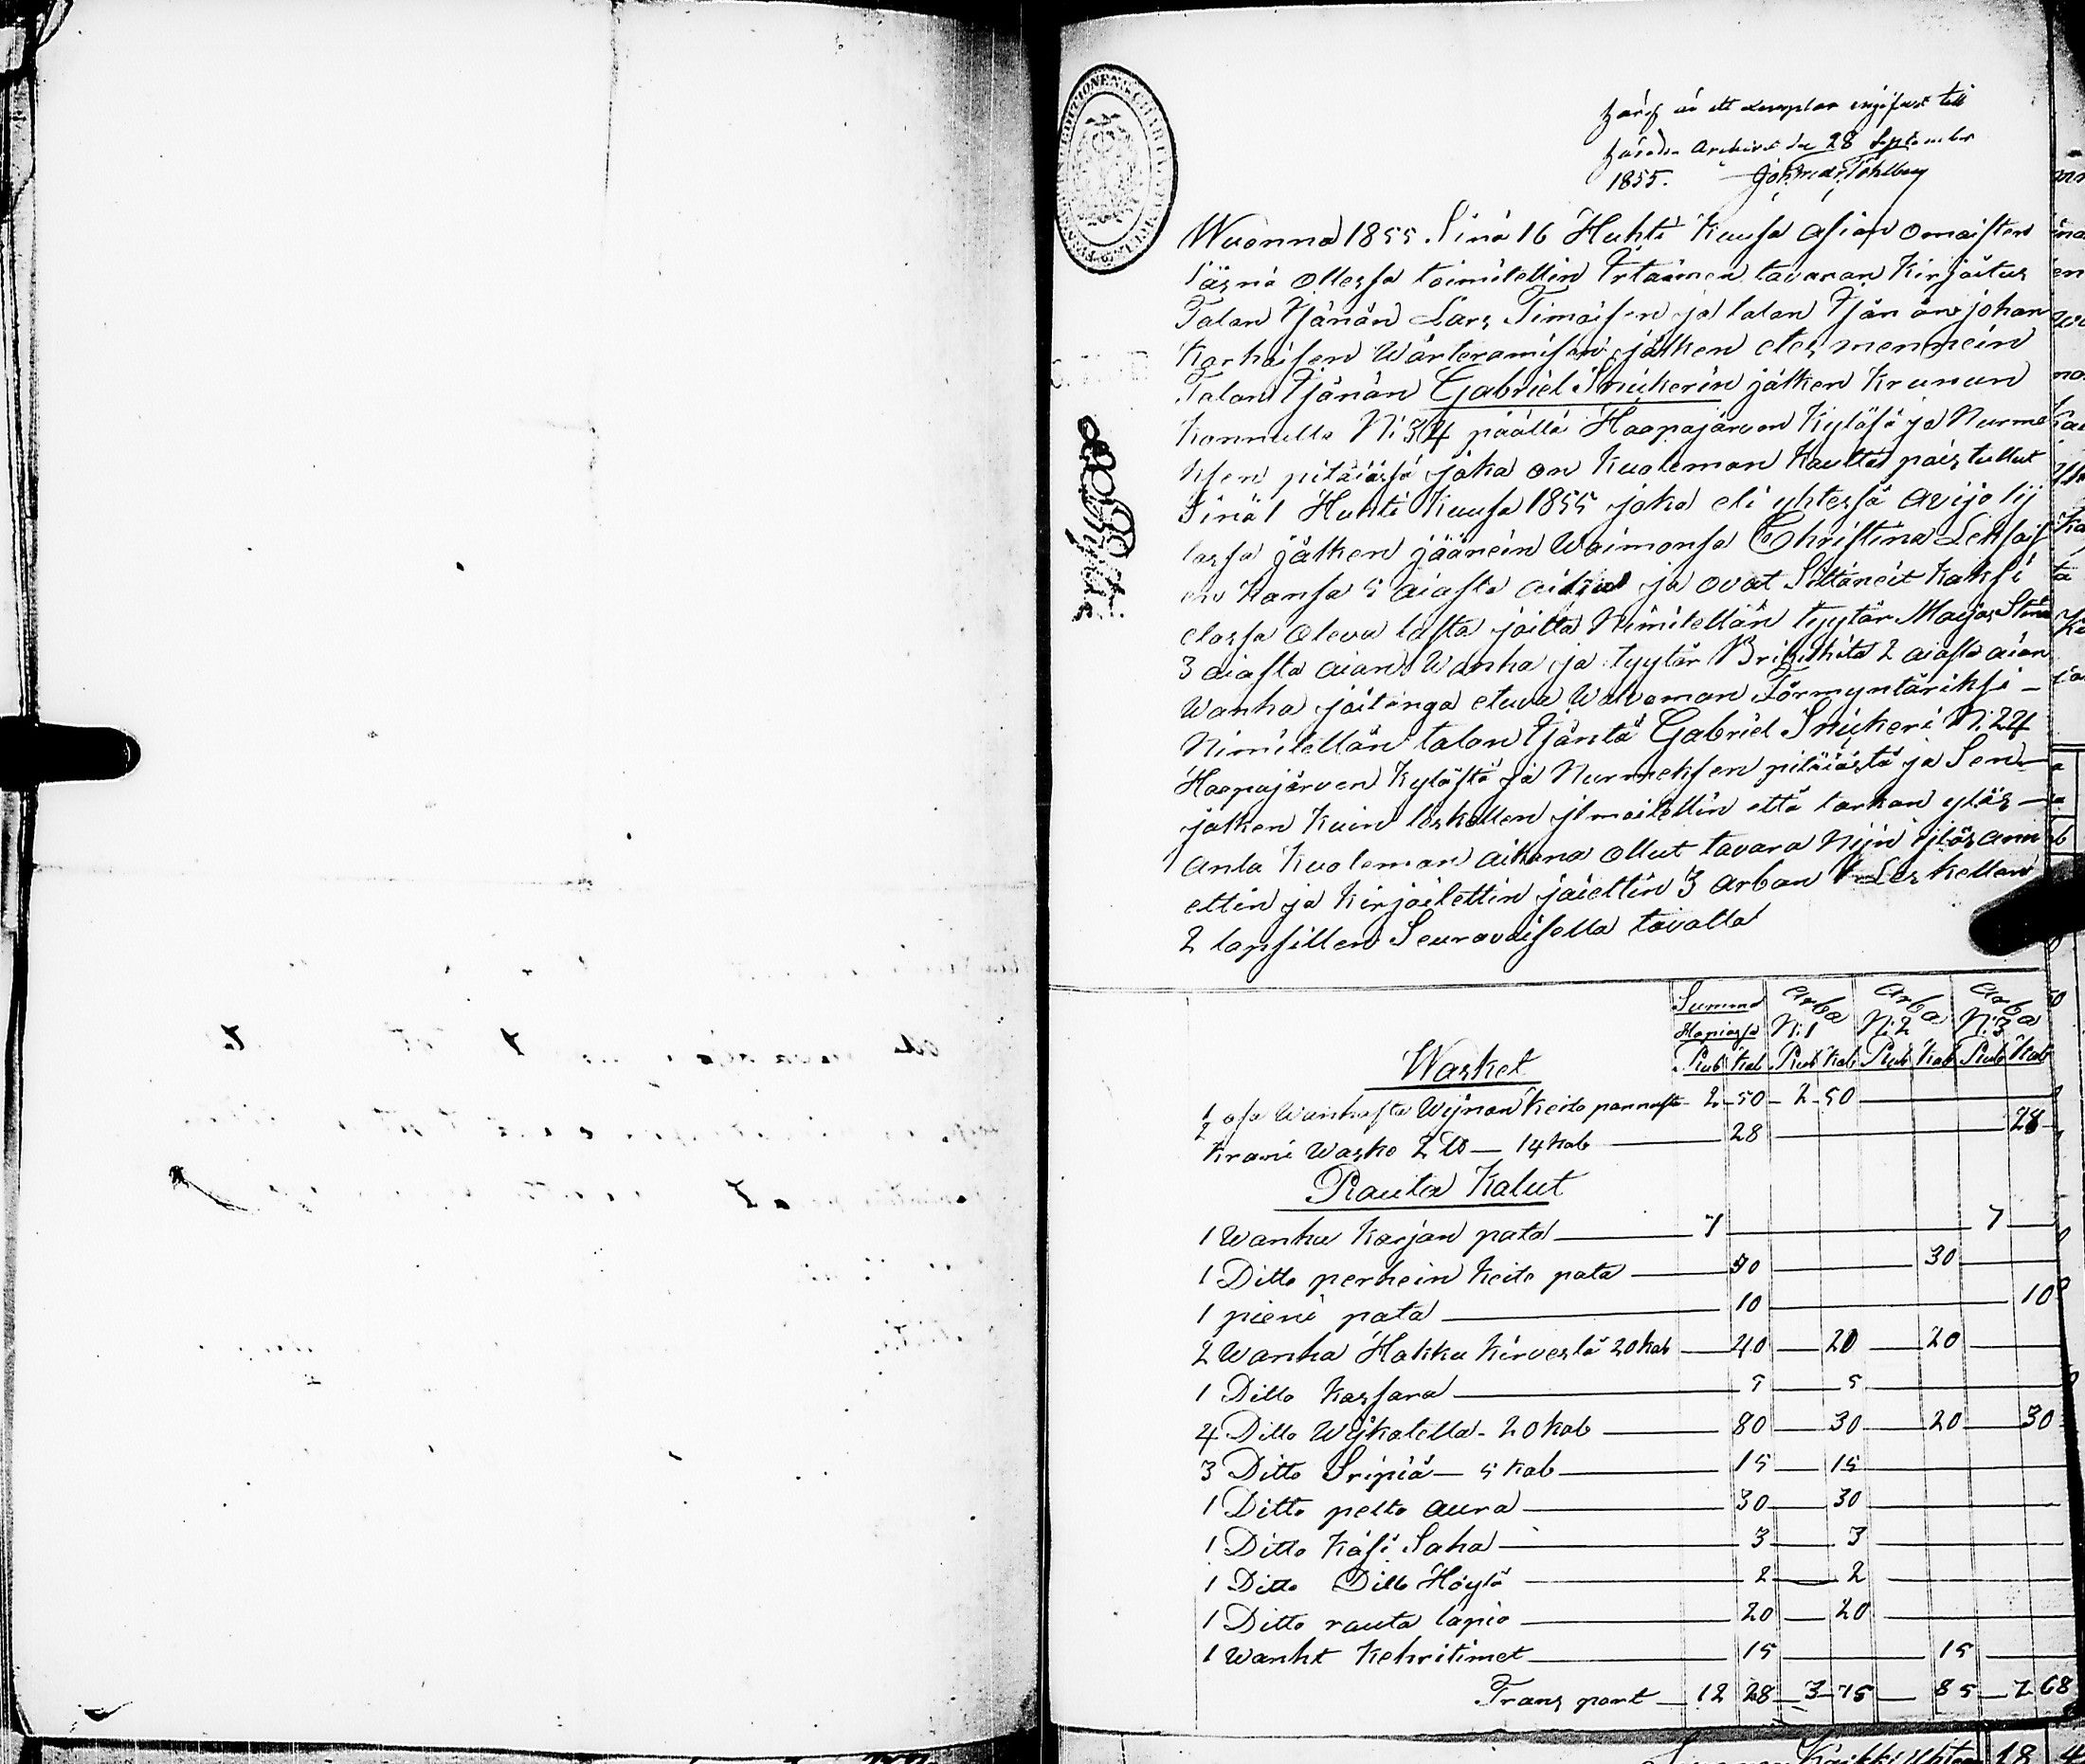 häraf är ett exemplar ingifvet till
härads Archivet den 28 September
1855.
Wuonna 1855. Sinä 16 Huhti Kuusa asian omaisten
Läsnä ollessa toimitettin Irtaimen tavaran Kirjoitus
Talon Isänän Lars Timoisen ja talon Isän än johan
Korhoisen Wärteramisen jälken edes mennein
Talon Isänän Gabriel Snickerin jälken Krunun
Konnulla N:34 päällä Haapajärven Kyläsä ja Nurme
ksen pitäiässä joka on Kuoleman Kautta pois tullut
Sinä 1 Huhti Kuusa 1855 joka eli yhtessä avijo lij
tossa jälken jäänein Waimonsa Christina
en Kansa 5 aiasta aikaa ja ovat Sittäneit Kaksi
elossa oleva lasta joitta Nimitellän tyytär Maija Stina
3 aiasta aian Wanha ja tyytär Brigithita 2 aiasta aian
Wanha joitenga etuva Walvoman Förmyntäriksi
Nimitellän talon Isäntä Gabriel Snickeri N:24
Haapajärven Kylästä ja Nurmeksen pitäiästä ja Sen
jälken Kuin leskellen jlmoitettin että tarkan ylös
anta Kuoleman aikana ollut tavara Nijn ylös ann
ettin ja Kirjoitettin jaiettin 3 arban 1 Leskellen
2 lapsillen Seuravaisella tavalla
Summa Arba Arba Arba
Hopiassa N:1 N:2 N:3
Rub Kab Rub Kab Rub Kab Rub Kab
Wasket
1/2 osa Wanhasta Wijnan Keito pannusta 2 50 2 50
Krani Wasko 2 ℔ 14 Kab 28 28
Rauta Kalut
1 Wanha Karjan pata 7 7
1 Ditto perhein Keito pata 30 30
1 pieni pata 10 10
2 Wanha Hakku Kirvestä 20 Kab 40 20 20
1 Ditto Kassara 5 5
4 Ditto Wijkatetta 20 Kab 80 30 20 30
3 Ditto Sirpiä 5 Kab 15 15
1 Ditto pelto aura 30 30
1 Ditto Käsi Saha 3 3
1 Ditto Ditto Höylä 2 2
1 Ditto rauta lapio 20 20
1 Wanht Kehritimet 15 15
Trans port 12 28 3 75 85 7 68